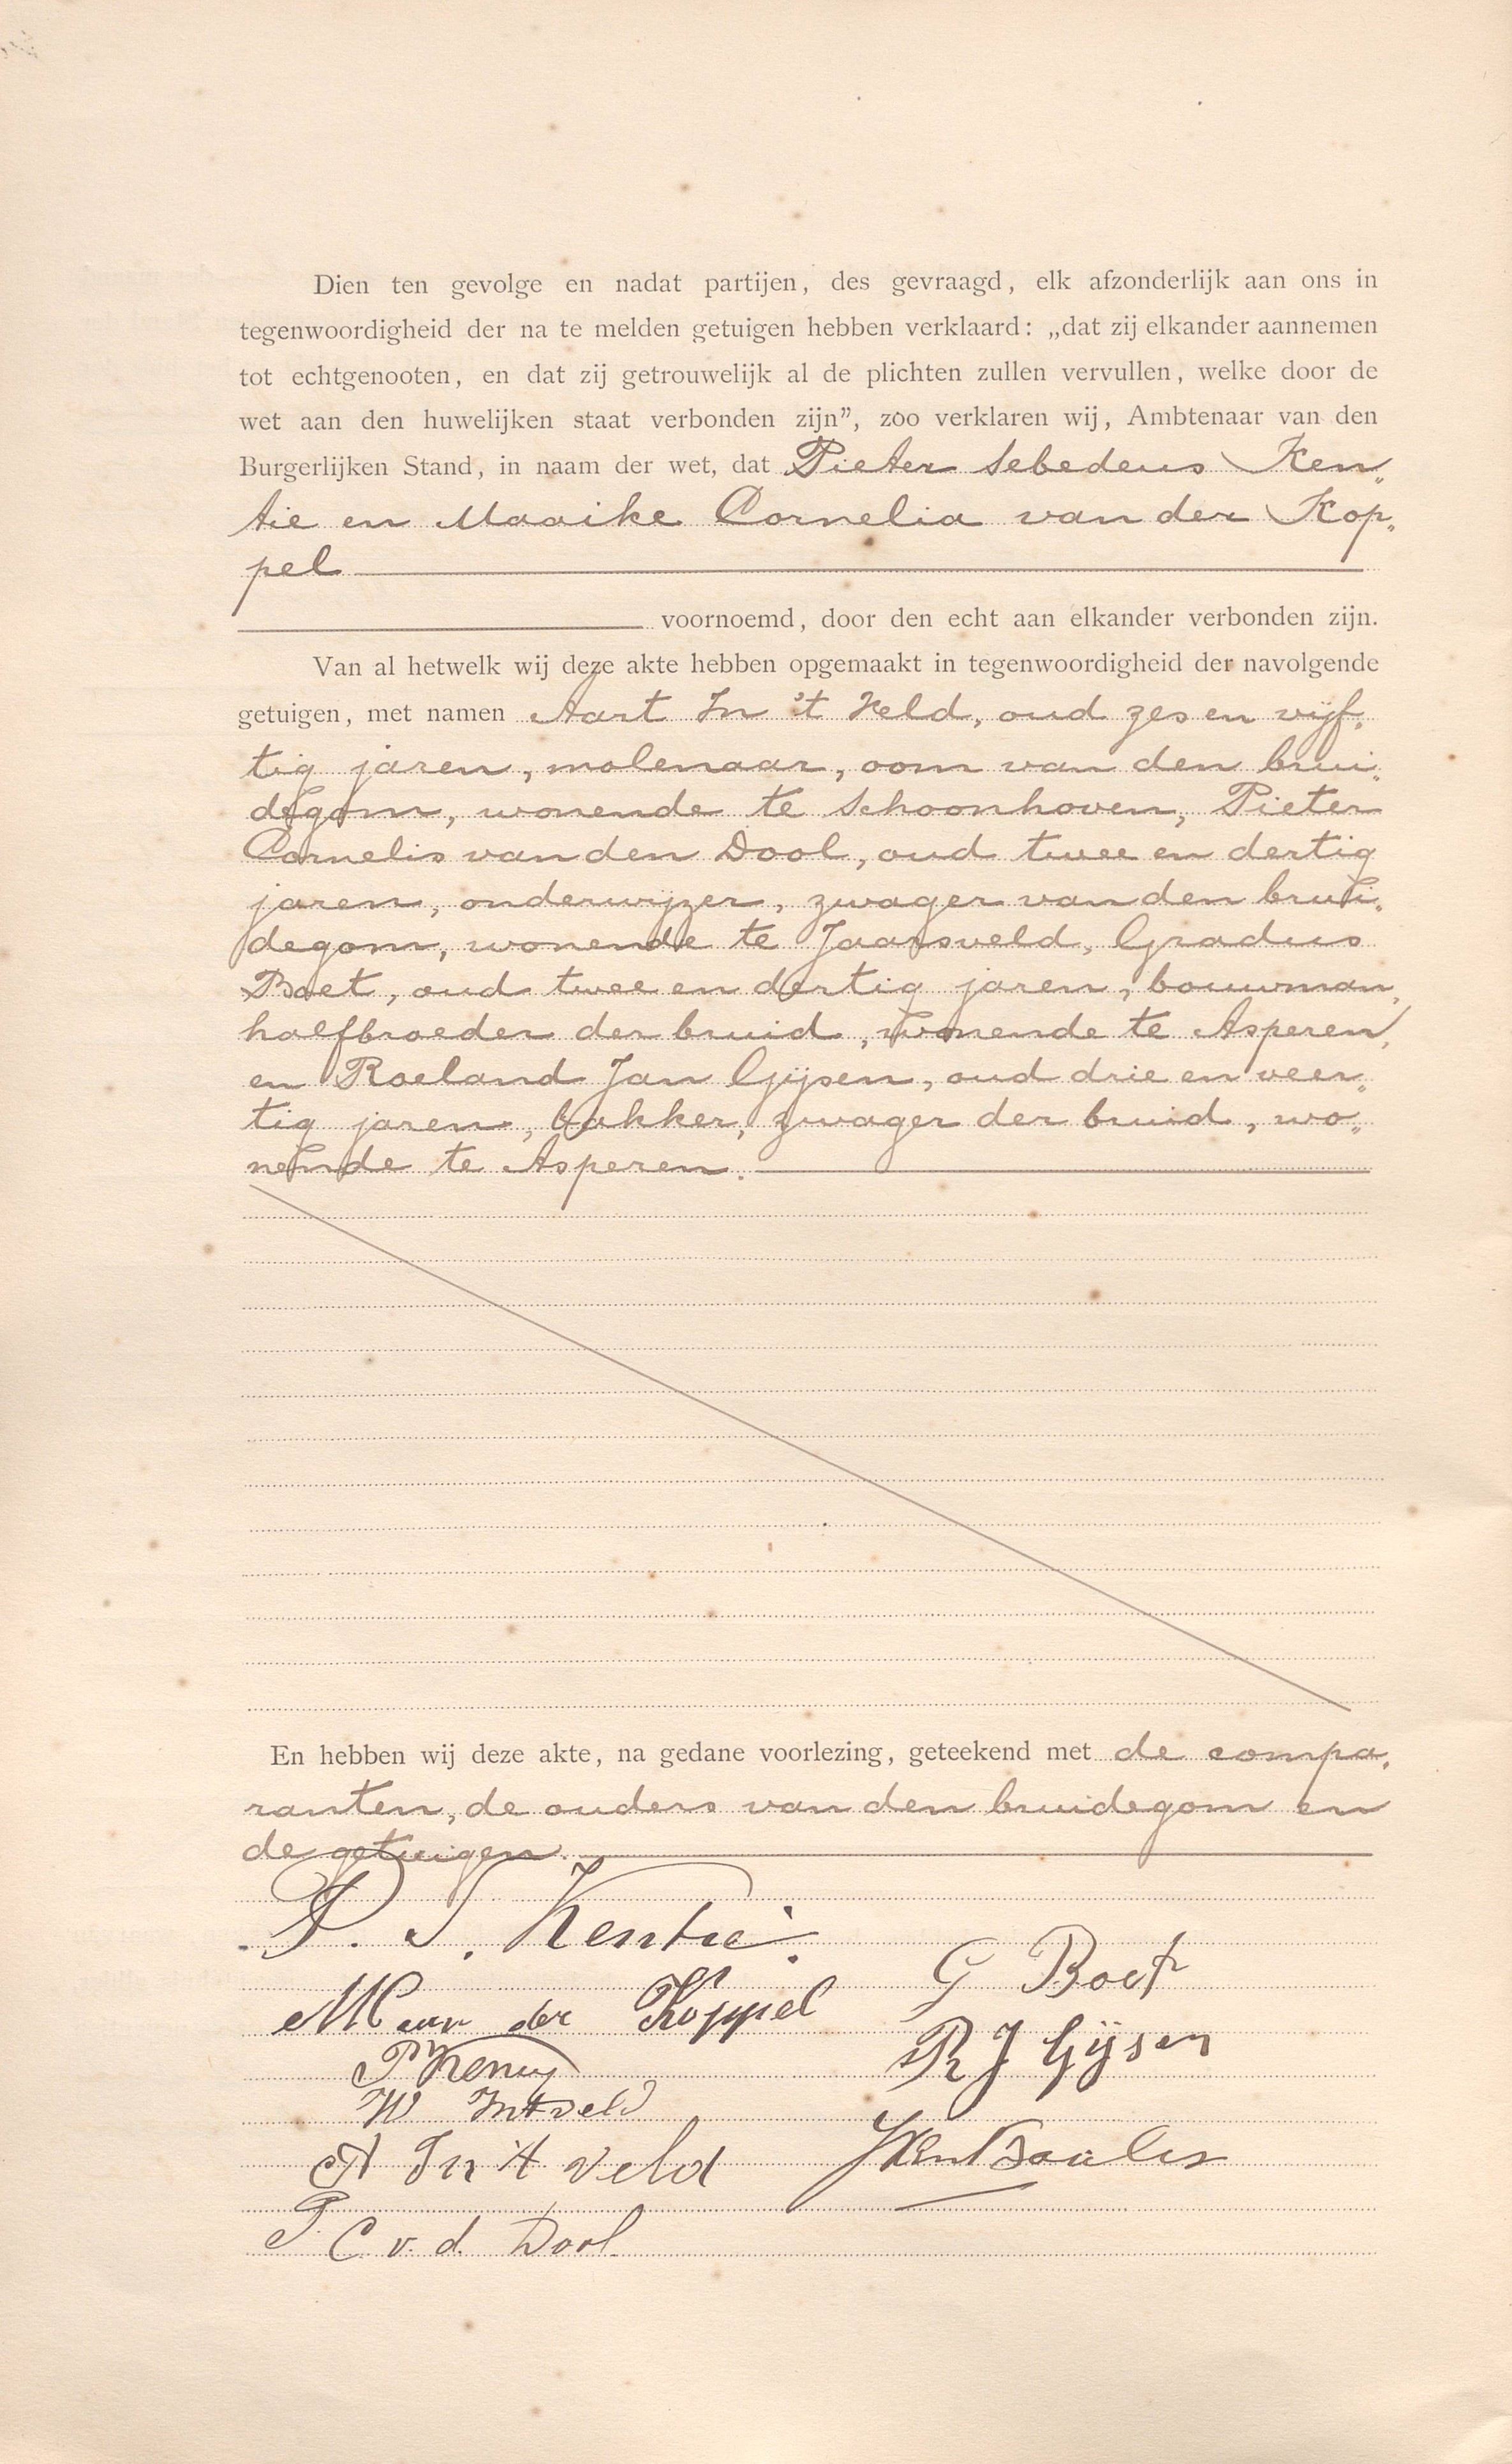 Dien ten gevolge en nadat partijen, des gevraagd, elk afzonderlijk aan ons in
tegenwoordigheid der na te melden getuigen hebben verklaard: „dat zij elkander aannemen
tot echtgenooten, en dat zij getrouwelijk al de plichten zullen vervullen, welke door de
wet aan den huwelijken staat verbonden zijn”, zoo verklaren wij, Ambtenaar van den
Burgerlijken Stand, in naam der wet, dat Pieter Sebedeus Ken„
tie en Maaike Cornelia van der Kop„
pel
voornoemd, door den echt aan elkander verbonden zijn.
Van al hetwelk wij deze akte hebben opgemaakt in tegenwoordigheid der navolgende
getuigen, met namen Aart In 't Veld, oud zes en vijf„
tig jaren, molenaar, oom van den brui„
degom, wonende te Schoonhoven, Pieter
Cornelis van den Dool, oud twee en dertig
jaren, onderwijzer, zwager van den brui„
degom, wonende te Jaarsveld, Gradus
Boet, oud twee en dertig jaren, bouwman,
halfbroeder der bruid, wonende te Asperen,
en Roeland Jan Gijsen, oud drie en veer„
tig jaren, bakker, zwager der bruid, wo„
nende te Asperen.
En hebben wij deze akte, na gedane voorlezing, geteekend met de compa„
ranten, de ouders van den bruidegom en
de getuigen.
P. S. Kentie.
M C van der Koppel
W Intveld
A In 't Veld
P. C v. d. Dool.
G Boet
R J Gijsen